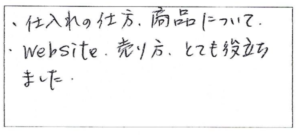 ・仕入れの仕方、商品について.
・Website. 売り方. とても役立ち
ました.